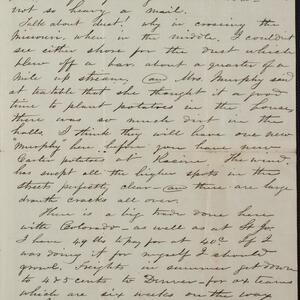 not so heavy a mail.
Talk about dust! why in crossing the
Missouri, when in the middle, I couldn't
see either shore for the dust which
blew off a bar about a quarter of a
mile up stream, and Mrs. Murphy said
at tea table that she thought it a good
time to plant potatoes in the house,
there was so much dirt in the
halls. I think they will have one new
Murphy here before you have new
Carter potatoes at Racine. The wind
has swept all the higher spots in the
streets perfectly clear - and there are large
drouth cracks all over.
There is a big trade done here
with Colorado - as well as at St Jo.
I have 49 lbs to pay for at 40c. If I
was doing it for myself I should
growl. Freights in summer get down
to 4 x 5 cents to Denver - for ox teams
which are six weeks on the way